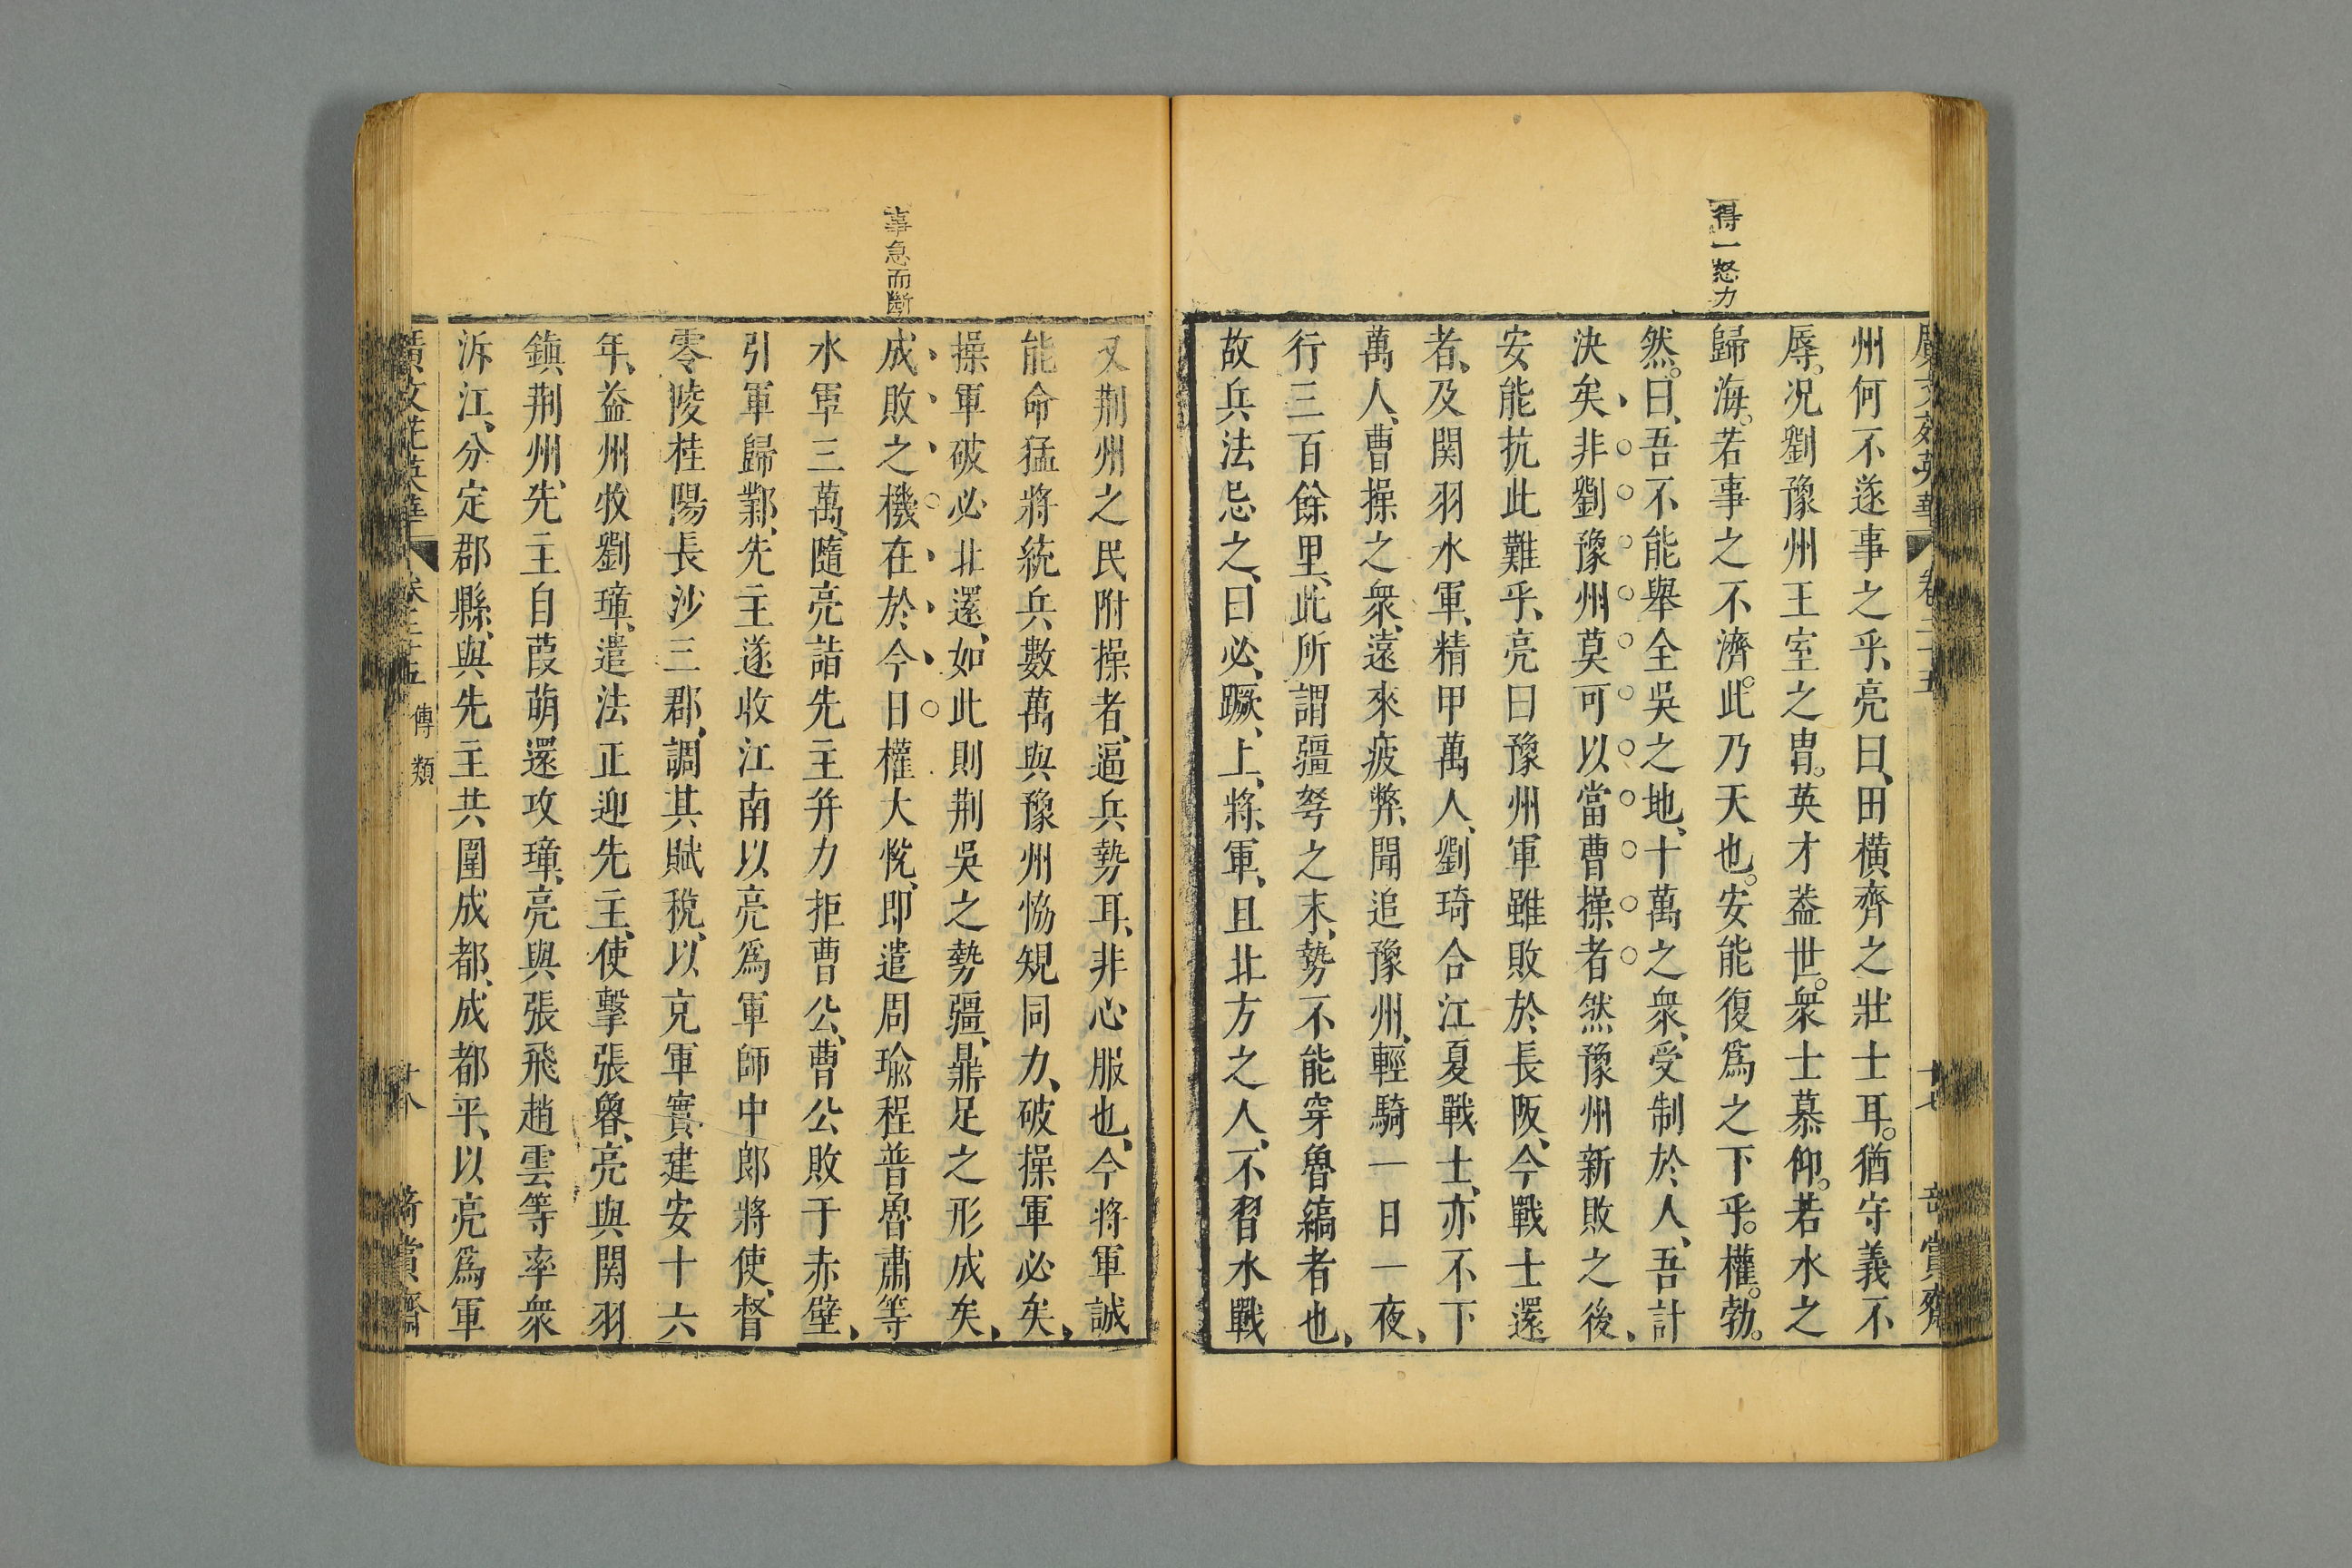 得一怒力
州何不遂事之乎、亮曰、田橫齊之壯士耳。猶守義不
辱。况劉豫州王室之胄。英才葢世。衆士慕仰。若水之
歸海。若事之不濟。此乃天也。安能復爲之下乎。權。勃。
然。曰、吾不能舉全吳之地、十萬之衆、受制於人、吾計
決矣、非劉豫州莫可以當曹操者然豫州新敗之後、
安能抗此難乎、亮曰豫州軍雖敗於長阪、今戰士還
者、及関羽水軍、精甲萬人、劉琦合江夏戰士、亦不下
萬人、曹操之衆、遠來疲弊、聞追豫州、輕騎一日一夜、
行三百餘里、此所謂彊弩之末、勢不能穿魯縞者也、
故兵法忌之、曰必、蹶、上、將、軍、且北方之人、不習水戰
事急而斷
又荆州之民附操者、逼兵勢耳、非心服也、今將軍誠
能命猛將統兵數萬與豫州恊規同力、破操軍必矣、
操軍破必北還、如此則荆吳之勢彊、鼎足之形成矣、
成敗之機在於今日權大悅、即遣周瑜程普魯肅等
水軍三萬、隨亮詣先主并力拒曹公、曹公敗于赤壁、
引軍歸鄴、先主遂收江南以亮爲軍師中郎將使、督
零陵桂陽長沙三郡、調其賦稅、以充軍實、建安十六
年、益州牧劉璋、遣法正迎先主、使擊張魯、亮與関羽
鎮荆州、先主自葭萌還攻璋、亮與張飛趙雲等率衆
泝江、分定郡縣、與先主共圍成都、成都平、以亮爲軍
傳類